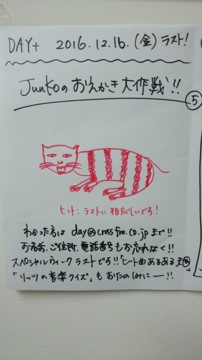 DAY+ 2016.12.16.(金) ラスト!
Junkoのおえかき大作戦!!
⑤
ヒント:ラストに相応しいどす!
わかった方は day@crossfm.co.jp まで!!
お名前、ご住所、電話番号もお忘れなく!!
スペシャルウィークラストどす!!「ヒット曲あるある
「リーツの音楽クイズ」も おたのしみにー!!